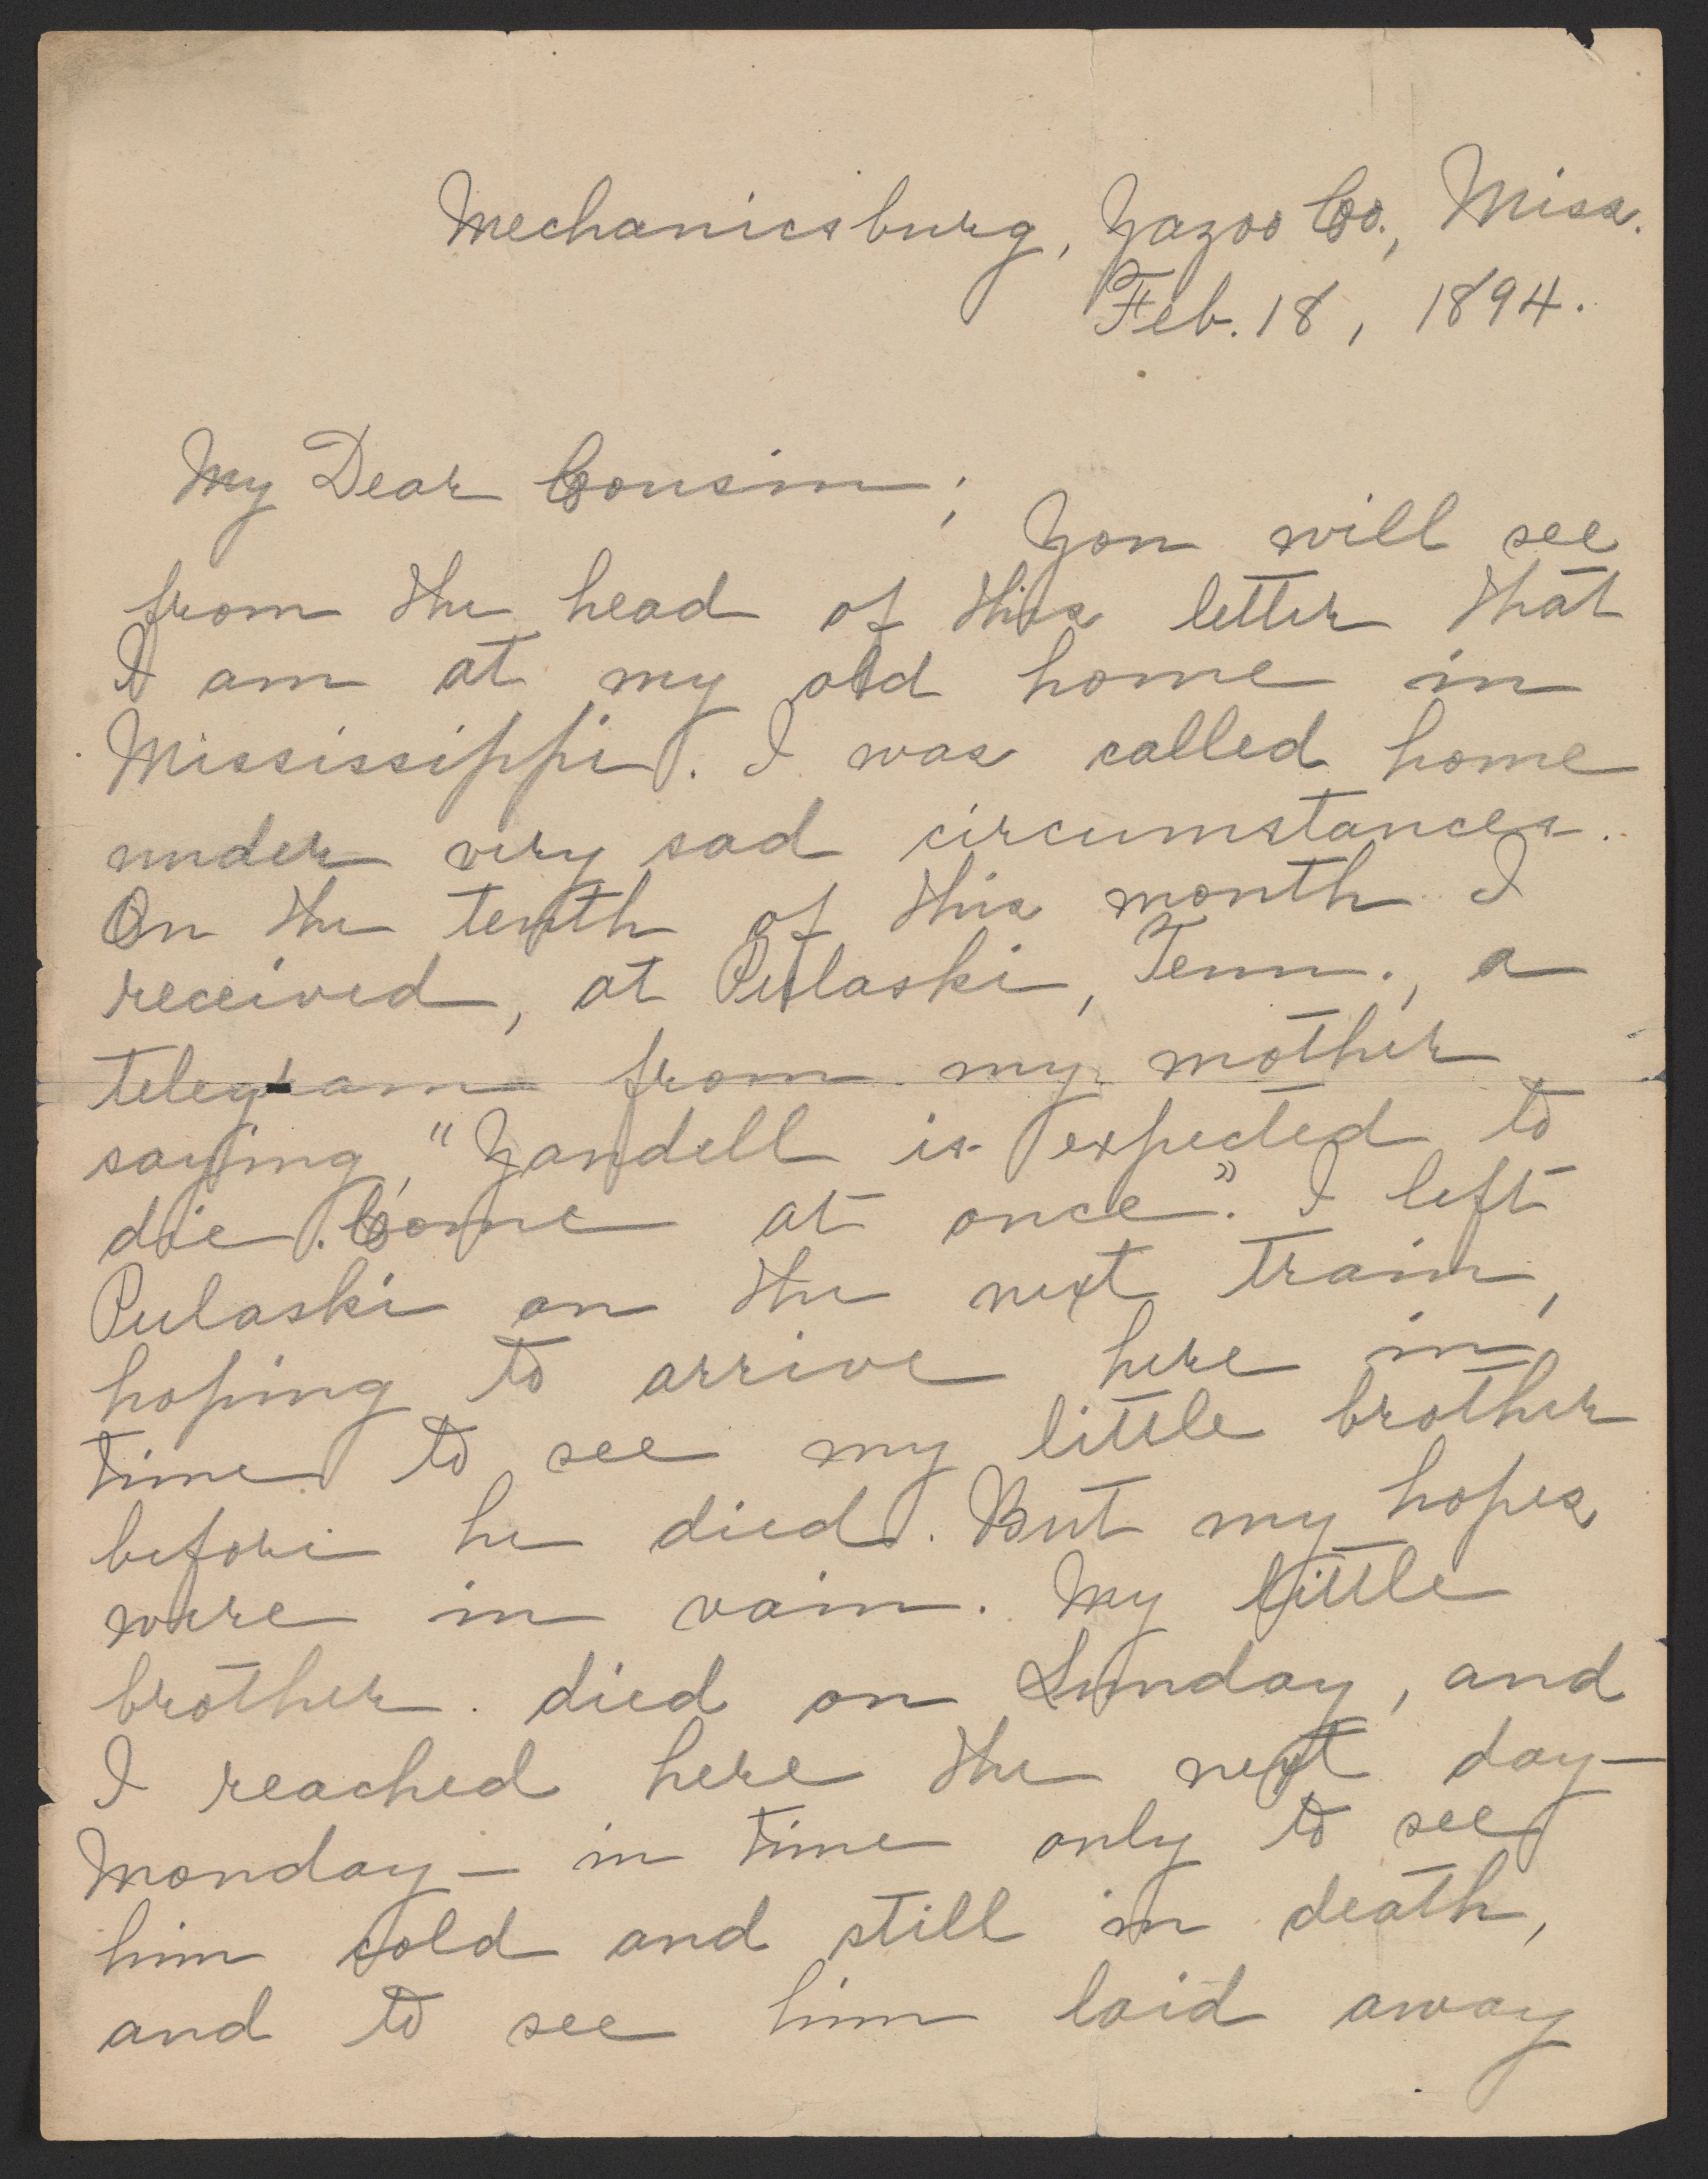 Mechanicsburg, Yazoo Co., Miss.
Feb. 18, 1894.
My Dear Cousin;
You will see
from the head of this letter that
I am at my old home in
Mississippi. I was called home
under very sad circumstances.
On the tenth of this month I
received, at Pulaski, Tenn., a
telegram from my mother
saying, "Yandell is expected to
die. Come at once". I left
Pulaski on the next train,
hoping to arrive here in
time to see my little brother
before he died. But my hopes
were in vain. My little
brother died on Sunday, and
I reached here the next day—
Monday— in time only to see
him cold and still in death,
and to see him laid away